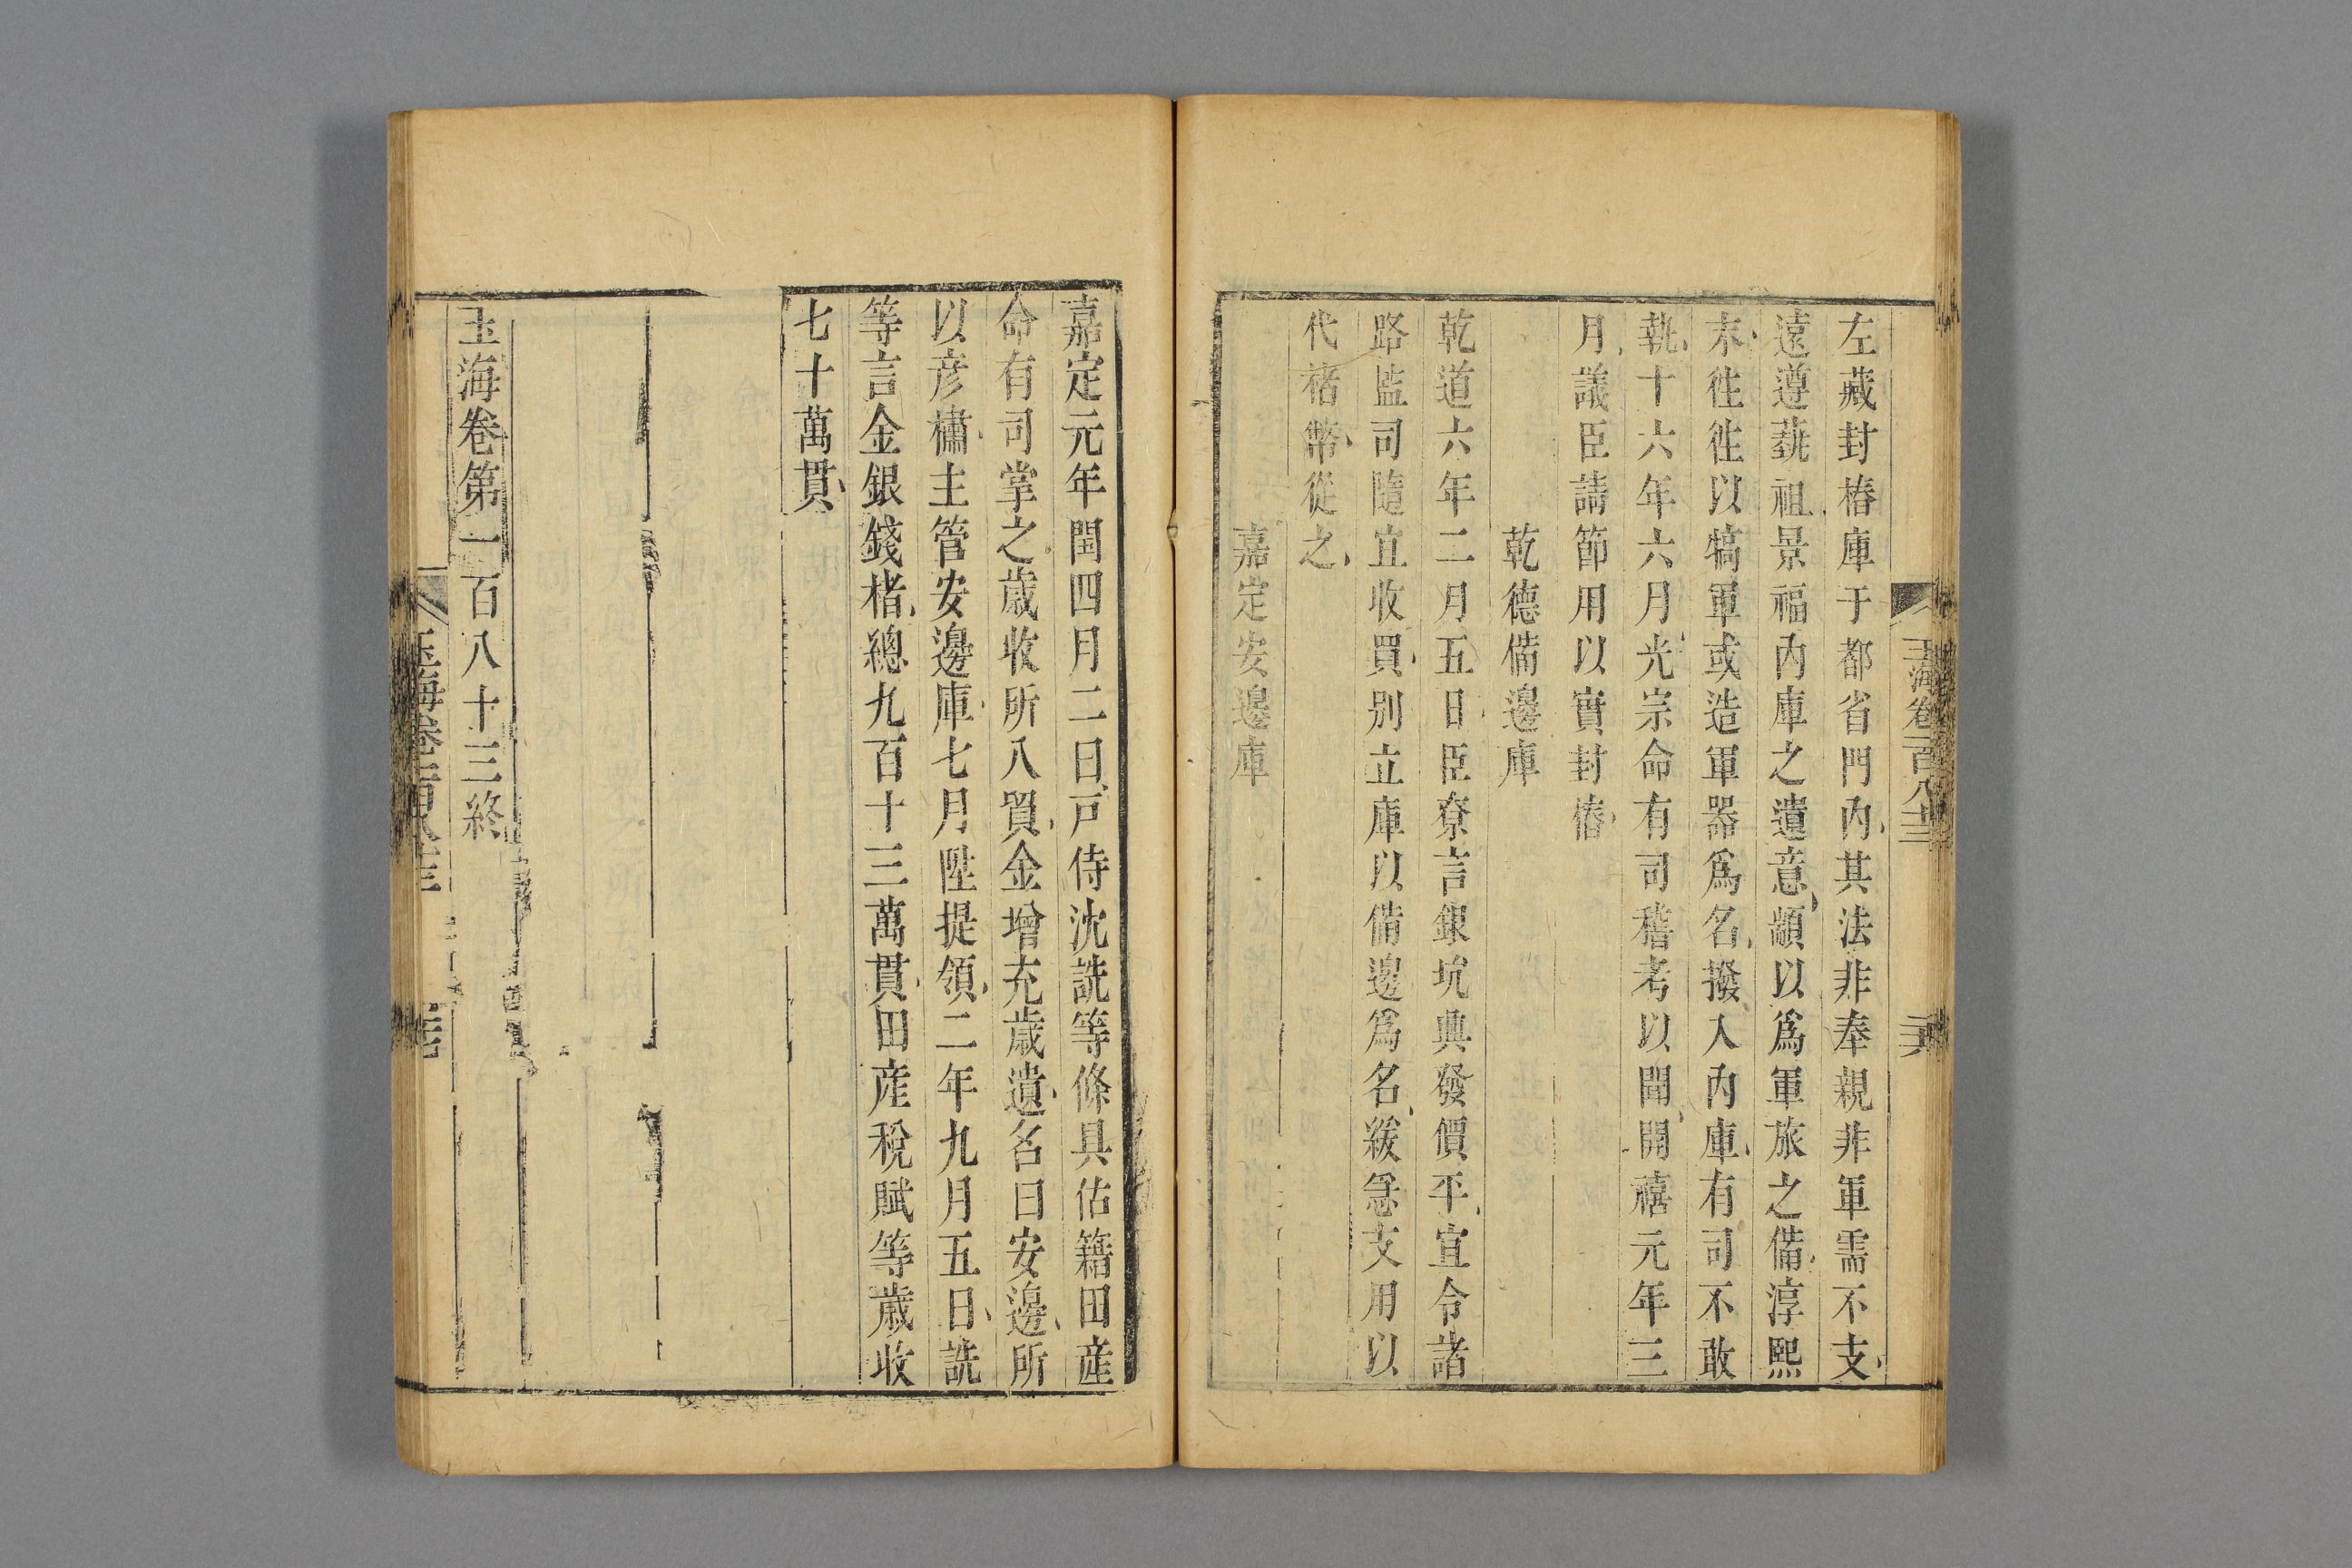 玉海卷一百八十三
二十六
左藏封樁庫于都省門內其法非奉親非軍需不支
遠遵藝祖景福內庫之遺意顓以爲軍旅之備淳熙
末徃徃以犒軍或造軍器爲名撥入內庫有司不敢
執十六年六月光宗命有司稽考以聞開禧元年三
月議臣請節用以實封樁
乾德備邊庫
乾道六年二月五日臣寮言銀坑興發價平宜令諸
路監司隨宜收買別立庫以備邊爲名緩急支用以
代褚幣從之
嘉定安邊庫
嘉定元年閏四月二日戸侍沈詵等條具估籍田産
命有司掌之歲收所入貿金增充歲遺名曰安邊所
以彦橚主管安邊庫七月陞提領二年九月五日詵
等言金銀錢楮總九百十三萬貫田産稅賦等歲收
七十萬貫
玉海卷第一百八十三終
玉海卷一百八十三